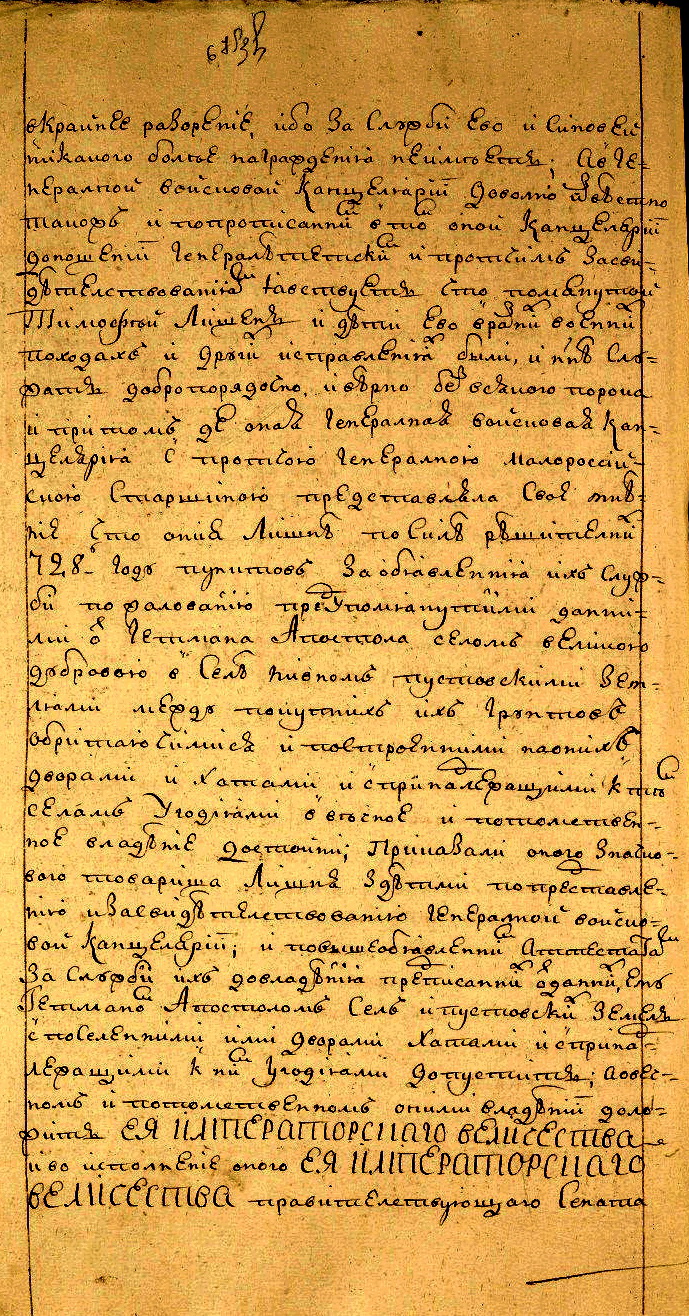 вкрайнее разорение, ибо за Службы Его и Синовей
никакого болѣе награждения неимѣется; Ав Ге-
нералной войсковой Канцелярии доволно извѣстно
такожъ и попрописаннимъ втой оной Канцелярии
доношении Генералѣтетскимъ и протчимъ Засви-
дѣтелствованиямъ Явствуется что помянутой
Тимофѣй Лишенъ и дѣти Его вразнихъ военнихъ
походахъ и другихъ исправленияхъ были, и ннѣ слу-
жатъ добропорядочно, и вѣрно безвсякого порока
и притомъ де оная Генералная войсковая Кан-
целярия Спротчого Генералного малороссий-
ского Старшиного представляла Свое мнѣ-
ние Что ония Лишнѣ посилѣ рѣшителнихъ
728г Году пунктовъ Заобявленния ихъ Служ-
би пожалованию предупомянутимъ данни-
ми от Гетмана Апостола селомъ великою
дубравою в Селѣ пустовскими Зем-
лями между покупнихъ ихъ грунтовъ
обритаючимися и построенними наонихъ
дворами и Хатами и спринадлежащими ктимъ
селамъ Угодиями ввѣчное и потомствен-
ное владѣние достойни; Приказали оного Значко-
вого товариша Лишня Здѣтми попредставле-
нию изасвидѣтелствованию Генералной войско-
вой Канцелярии; и повышеобявленнимъ Аттестатамъ
За Службу ихъ довладѣния преписаннихъ отданнихъ Емъ
Гетманомъ Апостоломъ Селъ ипустовскихъ Земель
споселенними ими дворами Хатами и сприна-
лежащими к нимъ Угодиями Допустить; Аовеч-
номъ и потомственномъ оними владѣнии доло-
жить ЕЯ ИМПЕРАТОРСКАГО ВЕЛИЧЕСТВА
иво исполнение оного ЕЯ ИМПЕРАТОРСКАГО
ВЕЛИЧЕСТВА правителствующаго Сената